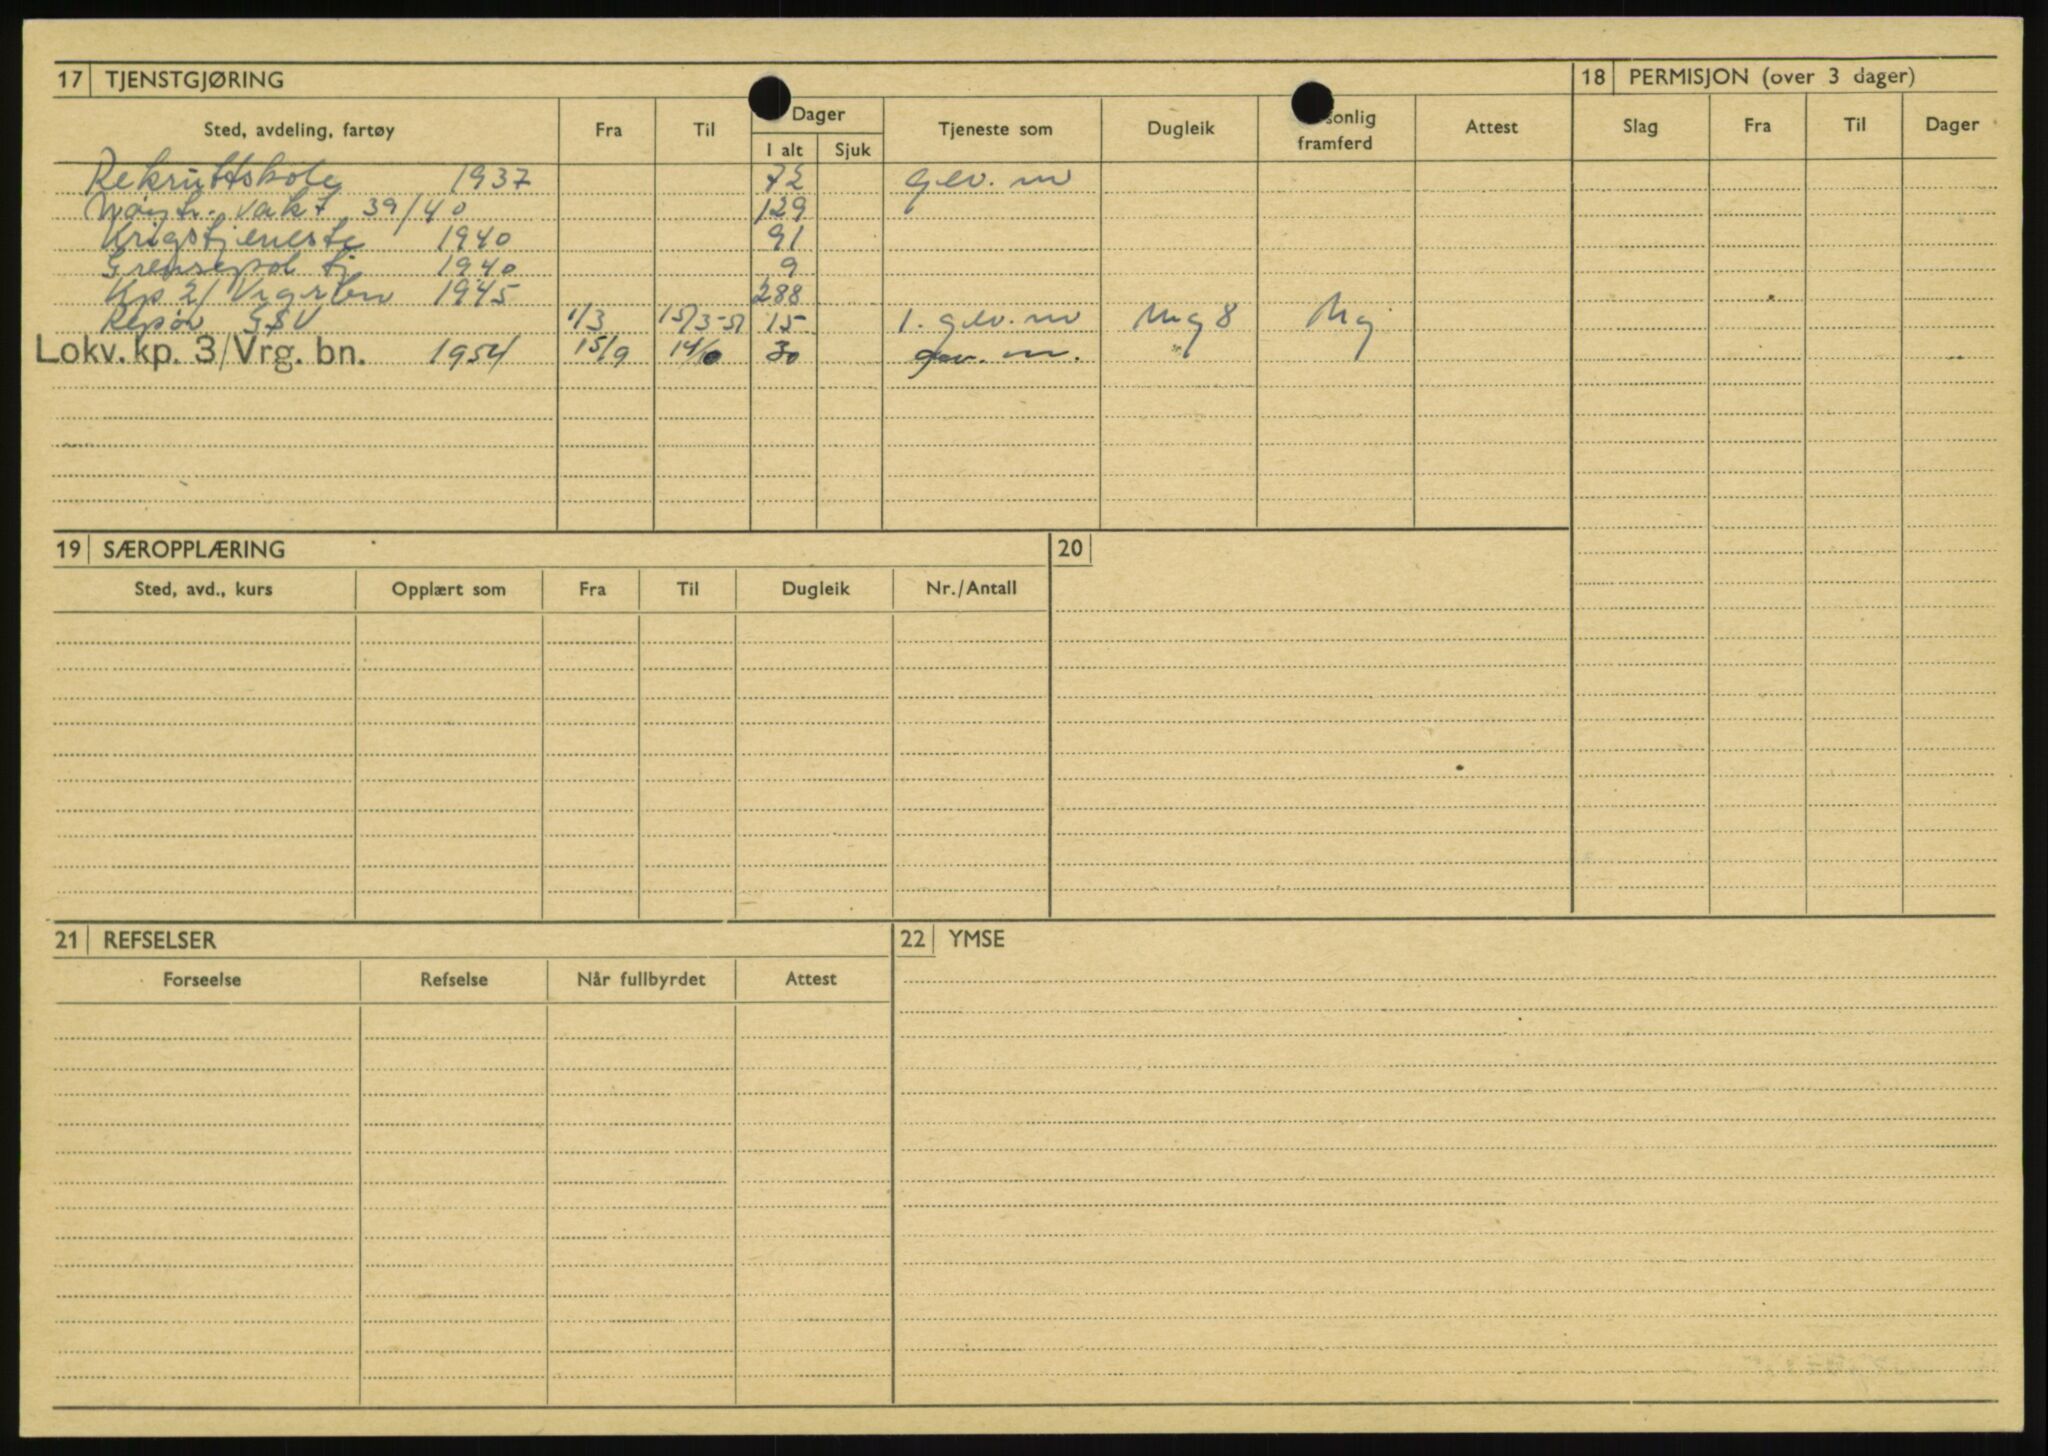 17 TJENSTGJØRING 18 PERMISJON (over 3 dager)
Sted, avdeling, fartøy Fra Til Dager I alt Sjuk Tjeneste som Dugleik sonlig framferd Attest Slag Fra Til Dager
Rekruttskole 1937 72 gev. m
Nøytr. vakt 39/40 129
Krigstjeneste 1940 91
Grensepol tj 1940 9
Kp 2/Vrgrbn 1945 288
Repøv GSV 1/3 15/3-51 15 1. gev. m Mg 8 Mg
Lokv. kp. 3/Vrg. bn. 1954 15/9 14/10 30 gev. m. "
19 SÆROPPLÆRING 20
Sted, avd., kurs Opplært som Fra Til Dugleik Nr./Antall
21 REFSELSER 22 YMSE
Forseelse Refselse Når fullbyrdet Attest